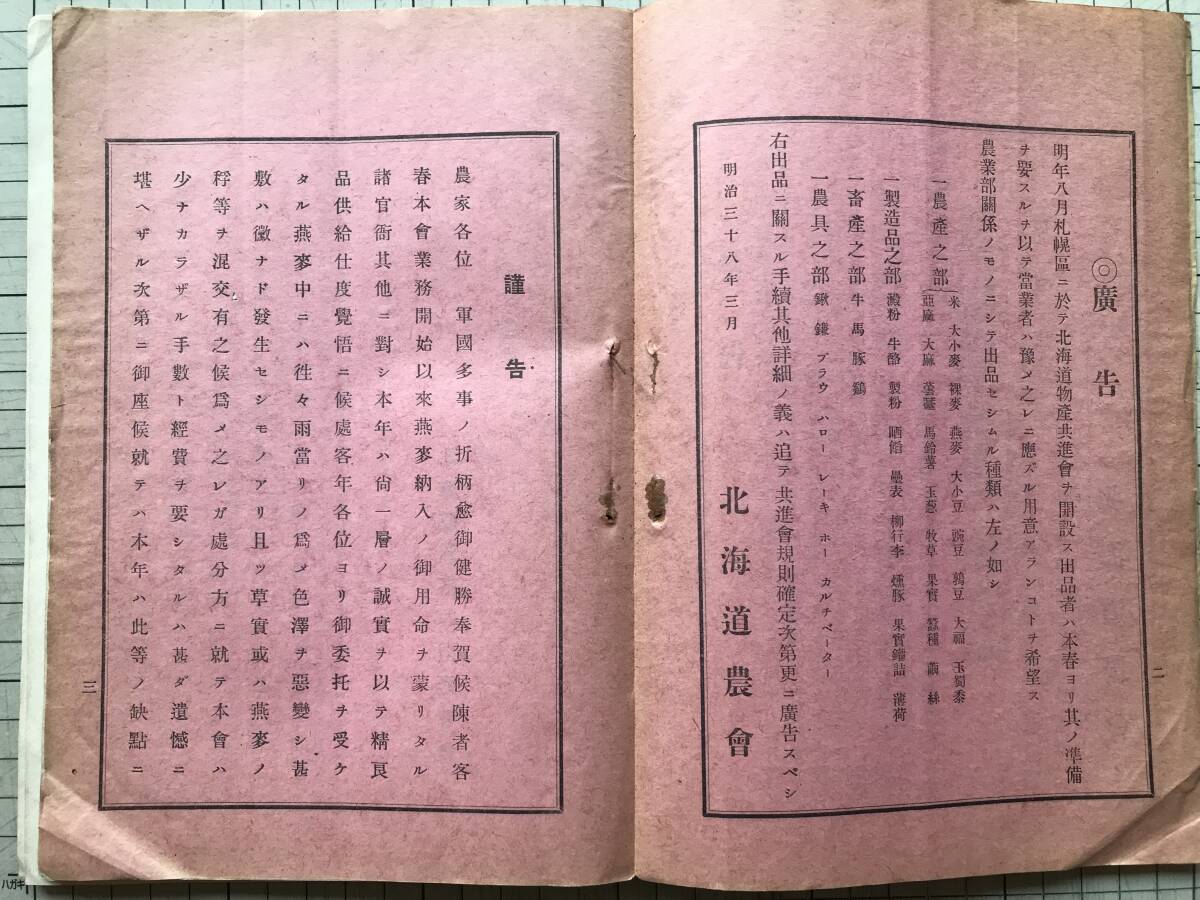 二
◎廣告
明年八月札幌區ニ於テ北海道物產共進會ヲ開設ス出品者ハ本春ヨリ其ノ準備
ヲ要スルヲ以テ當業者ハ豫メ之レニ應ズル用意アランコトヲ希望ス
農業部關係ノモノニシテ出品セシムル種類ハ左ノ如シ
一農產之部
米 大小麥 裸麥 燕麥 大小豆 豌豆 鶉豆 大福 玉蜀黍
亞麻 大麻 蕓薹 馬鈴薯 玉葱 牧草 果實 蠶種 繭 絲
一製造品之部 澱粉 牛酪 製粉 晒餡 疊表 柳行李 燻豚 果實鑵詰 薄荷
一畜產之部 牛 馬 豚 鷄
一農具之部 鍬 鎌 プラウ ハロー レーキ ホー カルチベーター
右出品ニ關スル手續其他詳細ノ義ハ追テ共進會規則確定次第更ニ廣告スベシ
明治三十八年三月
北海道農會
謹告
農家各位 軍國多事ノ折柄愈御健勝奉賀候陳者客
春本會業務開始以來燕麥納入ノ御用命ヲ蒙リタル
諸官衙其他ニ對シ本年ハ尙一層ノ誠實ヲ以テ精良
品供給仕度覺悟ニ候處客年各位ヨリ御委托ヲ受ケ
タル燕麥中ニハ徃々雨當リノ爲メ色澤ヲ惡變シ甚
敷ハ黴ナド發生セシモノアリ且ツ草實或ハ燕麥ノ
稃等ヲ混交有之候爲メ之レガ處分方ニ就テ本會ハ
少ナカラザル手數ト經費ヲ要シタルハ甚ダ遺憾ニ
堪ヘザル次第ニ御座候就テハ本年ハ此等ノ缺點ニ
三
ハガキ